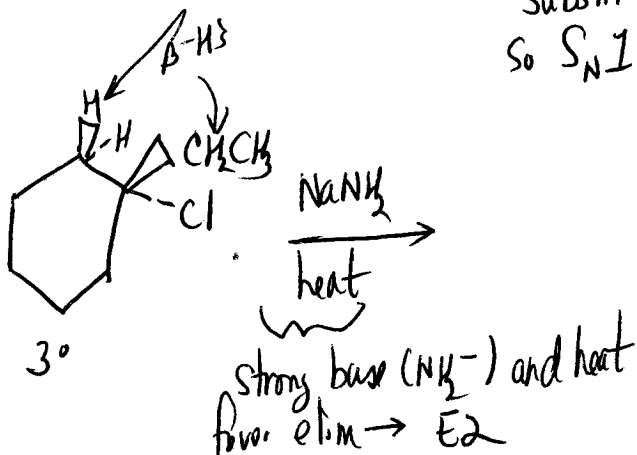 subst
so SN1
β-H's
H
H
CH2CH3
Cl
NaNH2
heat
3°
strong base (NH2-) and heat
favor elim → E2